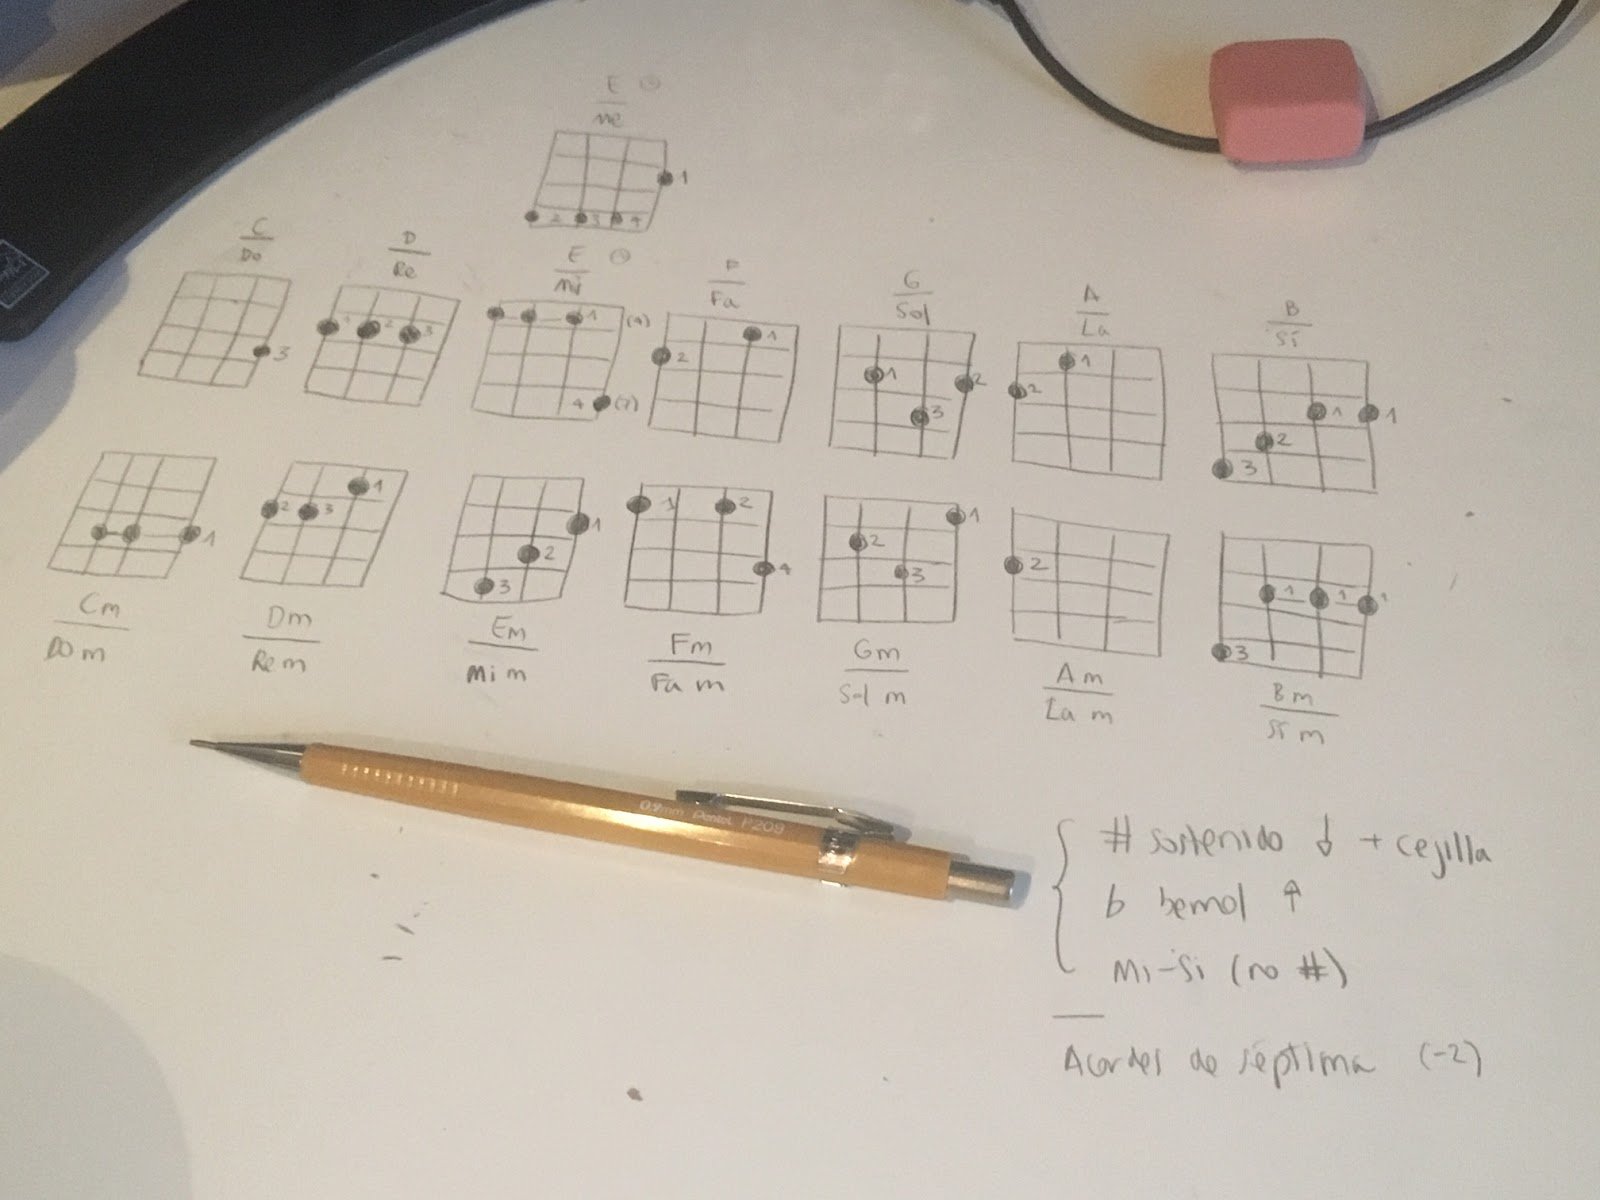 E
Mi
1
2 3 4
C
Do
3
D
Re
1 2 3
E
Mi
1 (4)
4 (7)
F
Fa
1
2
G
Sol
1 2
3
A
La
1
2
B
Si
1 1
2
3
1
Cm
Do m
1
2 3
Dm
Re m
1
2
3
Em
Mi m
1 2
4
Fm
Fa m
1
2
3
Gm
Sol m
2
Am
La m
1 1 1
3
Bm
Si m
0.9mm Pentel P209
# sostenido ↓ + cejilla
b bemol ↑
Mi-Si (no #)
Acordes de séptima (-2)